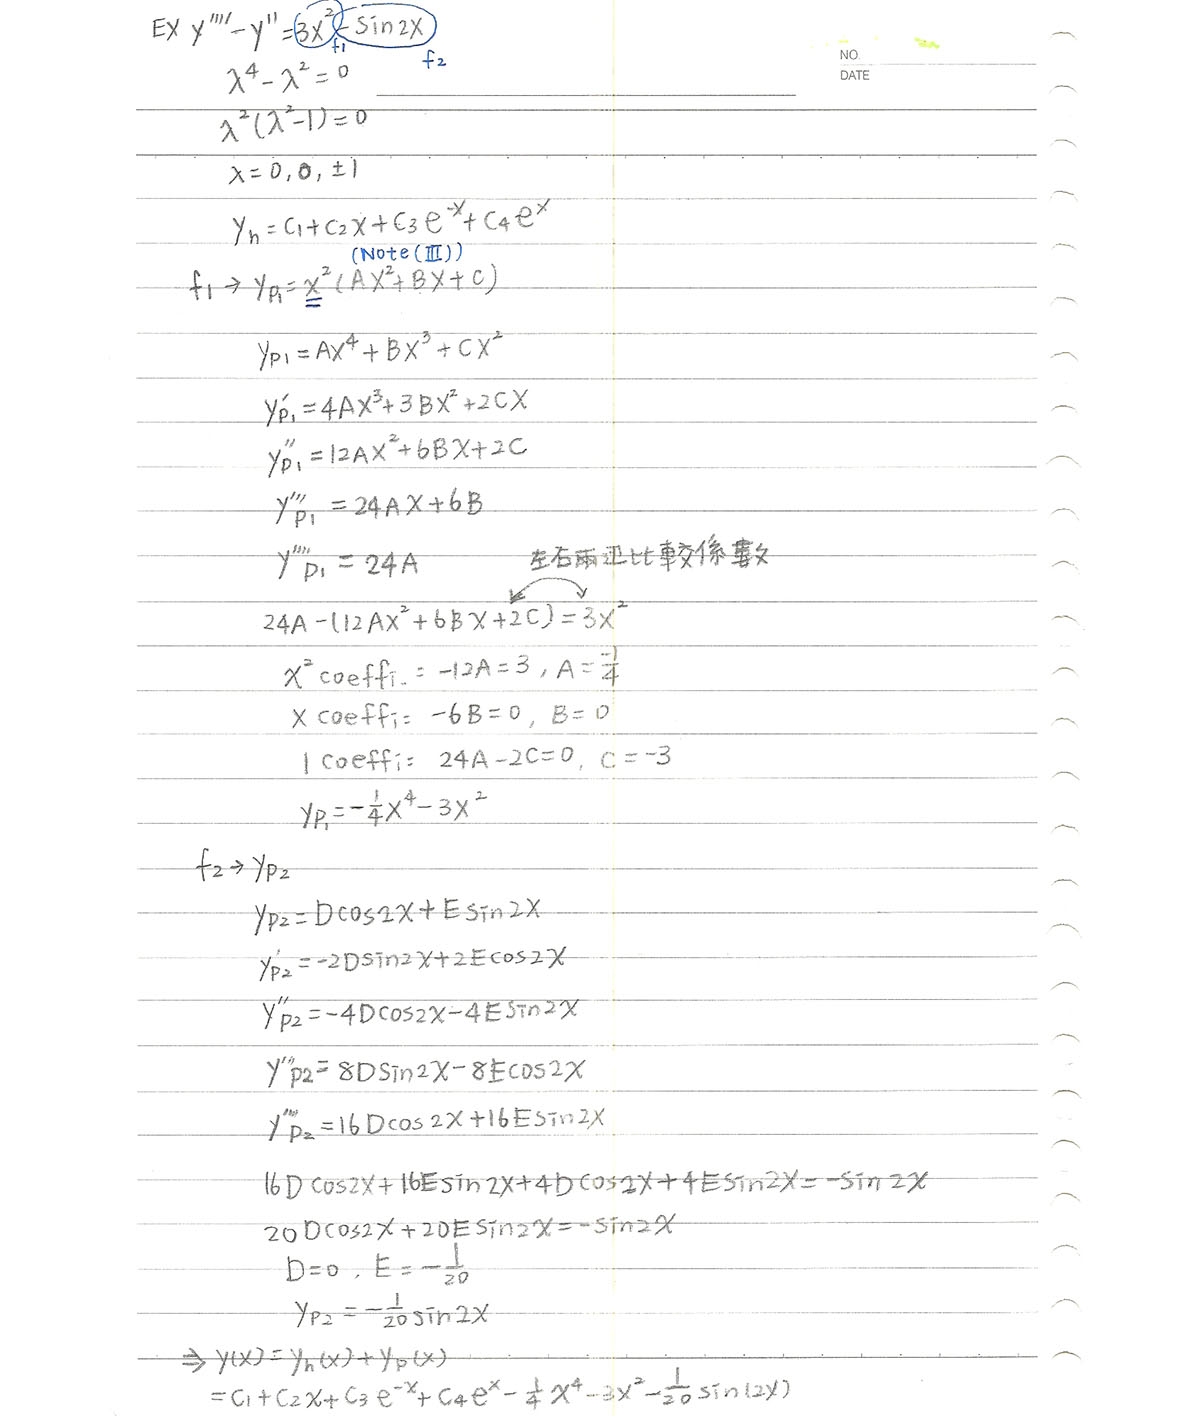 EX y''''-y''=3x²-sin2x
f1
f2
NO.
DATE
λ⁴-λ²=0
λ²(λ²-1)=0
λ=0,0,±1
yh=C1+C2x+C3e^-x+C4e^x
(Note(III))
f1→yp1=x²(Ax²+Bx+C)
yp1=Ax⁴+Bx³+Cx²
y'p1=4Ax³+3Bx²+2Cx
y''p1=12Ax²+6Bx+2C
y'''p1=24Ax+6B
y''''p1=24A
左右兩边比較係數
24A-(12Ax²+6Bx+2C)=3x²
x² coeffi.: -12A=3, A=-1/4
x coeffi: -6B=0, B=0
1 coeffi: 24A-2C=0, C=-3
yp1=-1/4x⁴-3x²
f2→yp2
yp2=Dcos2x+Esin2x
y'p2=-2Dsin2x+2Ecos2x
y''p2=-4Dcos2x-4Esin2x
y'''p2=8Dsin2x-8Ecos2x
y''''p2=16Dcos2x+16Esin2x
16Dcos2x+16Esin2x+4Dcos2x+4Esin2x=-sin2x
20Dcos2x+20Esin2x=-sin2x
D=0, E=-1/20
yp2=-1/20sin2x
⇒y(x)=yh(x)+yp(x)
=C1+C2x+C3e^-x+C4e^x-1/4x⁴-3x²-1/20sin(2x)